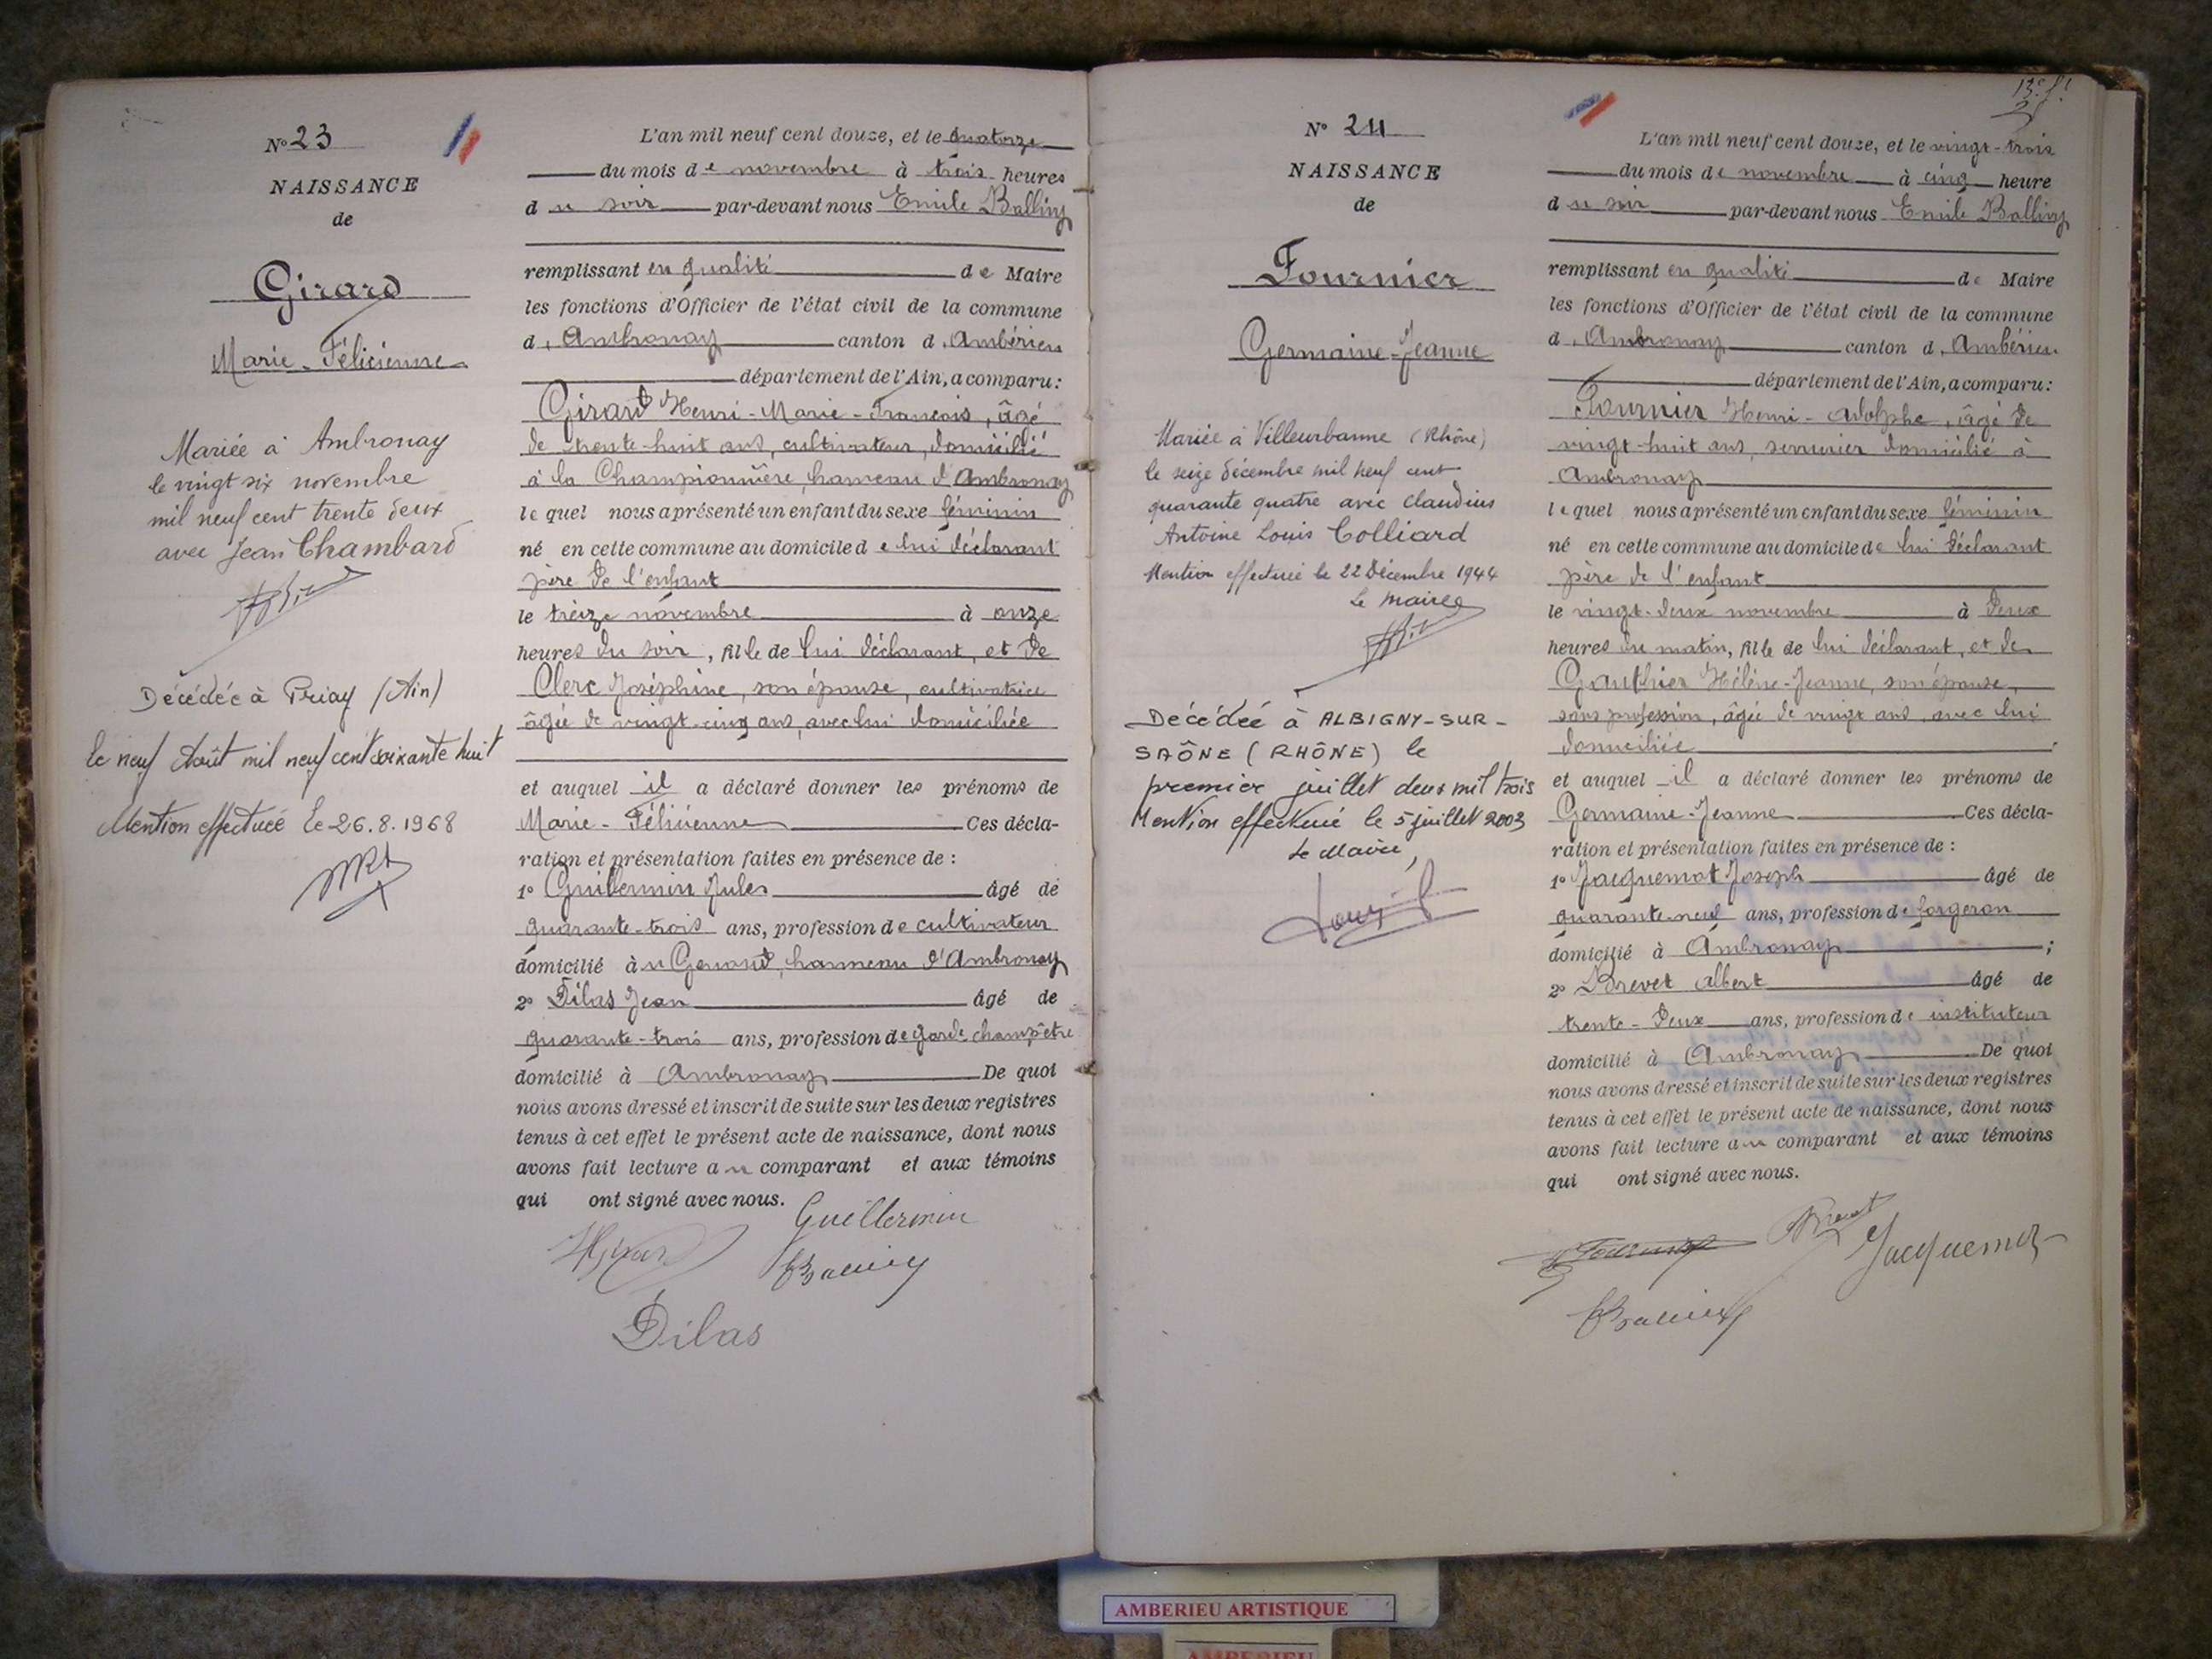 N° 23
NAISSANCE
de
Girard
Marie-Félicienne
Mariée à Ambronay
le vingt six novembre
mil neuf cent trente deux
avec Jean Chambard
Décédée à Priay (Ain)
le neuf Août mil neuf cent soixante huit
Mention effectuée le 26.8.1968
L'an mil neuf cent douze, et le quatorze
du mois de novembre à trois heures
du soir par-devant nous Emile Ballivy
remplissant en qualité de Maire
les fonctions d'Officier de l'état civil de la commune
d'Ambronay canton d'Ambérieu
département de l'Ain, a comparu :
Girard Henri-Marie-François, âgé
de trente-huit ans, cultivateur, domicilié
à la Championnière, hameau d'Ambronay
lequel nous a présenté un enfant du sexe féminin
né en cette commune au domicile de lui déclarant
père de l'enfant
le treize novembre à onze
heures du soir, fille de lui déclarant, et de
Clerc Joséphine, son épouse, cultivatrice
âgée de vingt-cinq ans, avec lui domiciliée
et auquel il a déclaré donner les prénoms de
Marie-Félicienne Ces décla-
ration et présentation faites en présence de :
1° Guillermin Jules âgé de
quarante-trois ans, profession de cultivateur
domicilié au Genoud, hameau d'Ambronay
2° Dilas Jean âgé de
quarante-trois ans, profession de garde champêtre
domicilié à Ambronay De quoi
nous avons dressé et inscrit de suite sur les deux registres
tenus à cet effet le présent acte de naissance, dont nous
avons fait lecture au comparant et aux témoins
qui ont signé avec nous.
Guillermin
HGirard
Ballivy
Dilas
13e f.t
N° 24
NAISSANCE
de
Fournier
Germaine-Jeanne
Mariée à Villeurbanne (Rhône)
le seize décembre mil neuf cent
quarante quatre avec Claudius
Antoine Louis Colliard
Mention effectuée le 22 Décembre 1944
Le maire
Décédée à ALBIGNY-SUR-
SAÔNE (RHÔNE) le
premier juillet deux mil trois
Mention effectuée le 5 juillet 2003
Le Maire,
L'an mil neuf cent douze, et le vingt-trois
du mois de novembre à cinq heure
du soir par-devant nous Emile Ballivy
remplissant en qualité de Maire
les fonctions d'Officier de l'état civil de la commune
d'Ambronay canton d'Ambérieu
département de l'Ain, a comparu :
Fournier Henri-Adolphe, âgé de
vingt-huit ans, serrurier domicilié à
Ambronay
lequel nous a présenté un enfant du sexe féminin
né en cette commune au domicile de lui déclarant
père de l'enfant
le vingt-deux novembre à deux
heures du matin, fille de lui déclarant, et de
Gauthier Hélène-Jeanne, son épouse,
sans profession, âgée de vingt ans, avec lui
domiciliée
et auquel il a déclaré donner les prénoms de
Germaine-Jeanne Ces décla-
ration et présentation faites en présence de :
1° Jacquemot Joseph âgé de
quarante-neuf ans, profession de forgeron
domicilié à Ambronay ;
2° Brevet Albert âgé de
trente-deux ans, profession de instituteur
domicilié à Ambronay De quoi
nous avons dressé et inscrit de suite sur les deux registres
tenus à cet effet le présent acte de naissance, dont nous
avons fait lecture au comparant et aux témoins
qui ont signé avec nous.
Fournier
Brevet
Jacquemot
Ballivy
AMBERIEU ARTISTIQUE
AMBERIEU